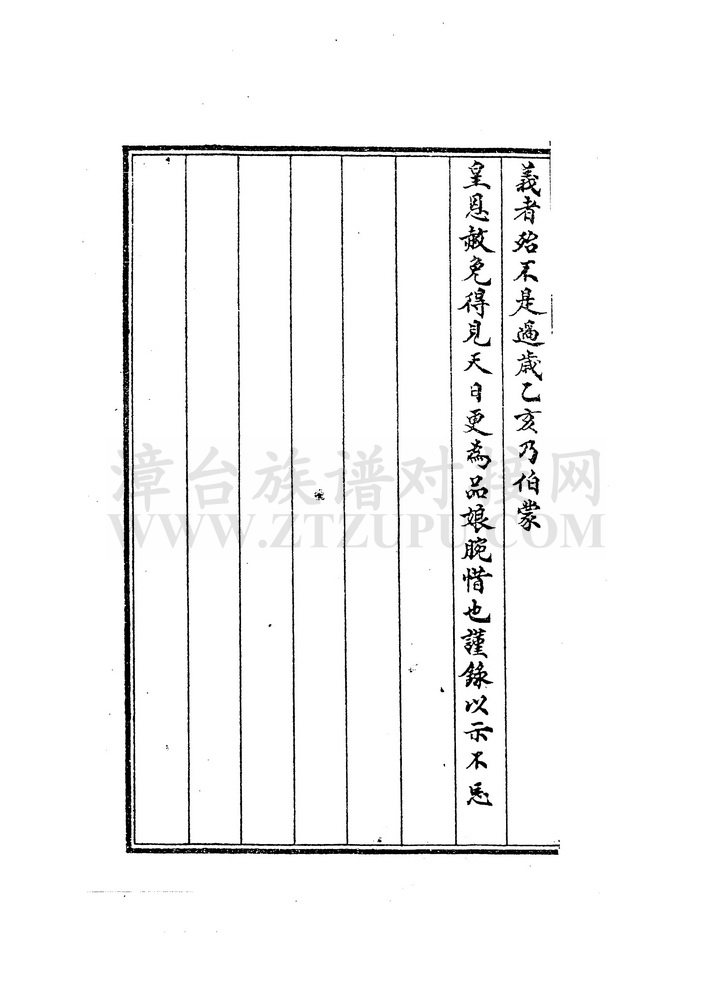 義者殆不是過歲乙亥乃伯蒙
皇恩赦免得見天日更為品娘腕惜也謹錄以示不忘
漳台族谱对接网
WWW.ZTZUPU.COM